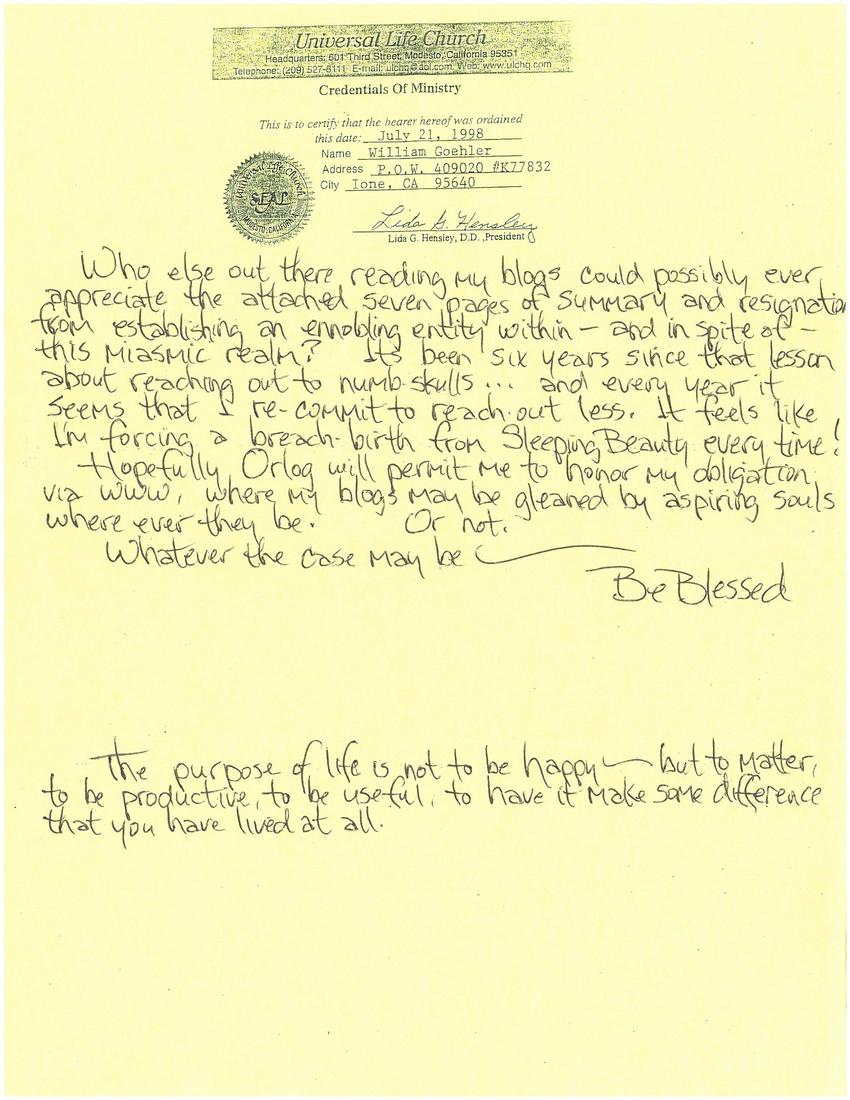 Universal Life Church
Headquarters: 601 Third Street, Modesto, California 95351
Telephone: (209) 527-8111 E-mail: ulchq@aol.com Web: www.ulchq.com
Credentials Of Ministry
This is to certify that the bearer hereof was ordained
this date: July 21, 1998
Name William Goehler
Address P.O.W. 409020 #K77832
City Ione, CA 95640
Universal Life Church
SEAL
MODESTO, CALIFORNIA
Lida G. Hensley
Lida G. Hensley, D.D. ,President
Who else out there reading my blogs could possibly ever
appreciate the attached seven pages of summary and resignation
from establishing an ennobling entity within – and in spite of –
this miasmic realm? Its been six years since that lesson
about reaching out to numb-skulls ... and every year it
seems that I re-commit to reach-out less. It feels like
I'm forcing a breach-birth from Sleeping Beauty every time!
Hopefully Orlog will permit me to honor my obligation
via www, where my blogs may be gleaned by aspiring souls
where ever they be. Or not.
Whatever the case may be —
Be Blessed
The purpose of life is not to be happy — but to matter,
to be productive, to be useful, to have it make some difference
that you have lived at all.